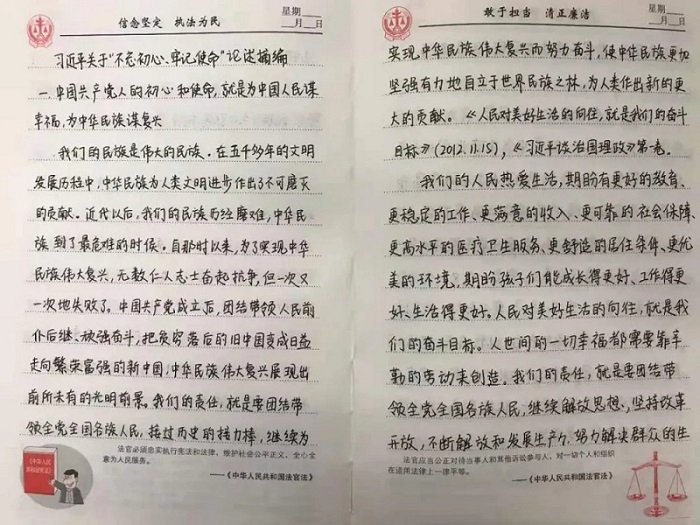 信念坚定 执法为民
星期____
____月____日
习近平关于“不忘初心、牢记使命”论述摘编
一.中国共产党人的初心和使命,就是为中国人民谋
幸福,为中华民族谋复兴
我们的民族是伟大的民族.在五千多年的文明
发展历程中,中华民族为人类文明进步作出了不可磨灭
的贡献。近代以后,我们的民族历经磨难,中华民
族到了最危难的时候。自那时以来,为了实现中华
民族伟大复兴,无数仁人志士奋起抗争,但一次又
一次地失败了。中国共产党成立后,团结带领人民前
仆后继、顽强奋斗,把贫穷落后的旧中国变成日益
走向繁荣富强的新中国,中华民族伟大复兴展现出
前所未有的光明前景。我们的责任,就是要团结带
领全党全国各族人民,接过历史的接力棒,继续为
法官必须忠实执行宪法和法律,维护社会公平正义,全心全
意为人民服务。
——《中华人民共和国法官法》
《中华人民
共和国宪法》
敢于担当 清正廉洁
星期____
____月____日
实现中华民族伟大复兴而努力奋斗,使中华民族更加
坚强有力地自立于世界民族之林,为人类作出新的更
大的贡献。《人民对美好生活的向往,就是我们的奋斗
目标》(2012.11.15),《习近平谈治国理政》第一卷.
我们的人民热爱生活,期盼有更好的教育、
更稳定的工作、更满意的收入、更可靠的社会保障、
更高水平的医疗卫生服务、更舒适的居住条件、更优
美的环境,期盼孩子们能成长得更好、工作得更
好、生活得更好。人民对美好生活的向往,就是我
们的奋斗目标。人世间的一切幸福都需要靠辛
勤的劳动来创造。我们的责任,就是要团结带
领全党全国各族人民,继续解放思想、坚持改革
开放,不断解放和发展生产力,努力解决群众的生
法官应当公正对待当事人和其他诉讼参与人,对一切个人和组织
在适用法律上一律平等。
——《中华人民共和国法官法》